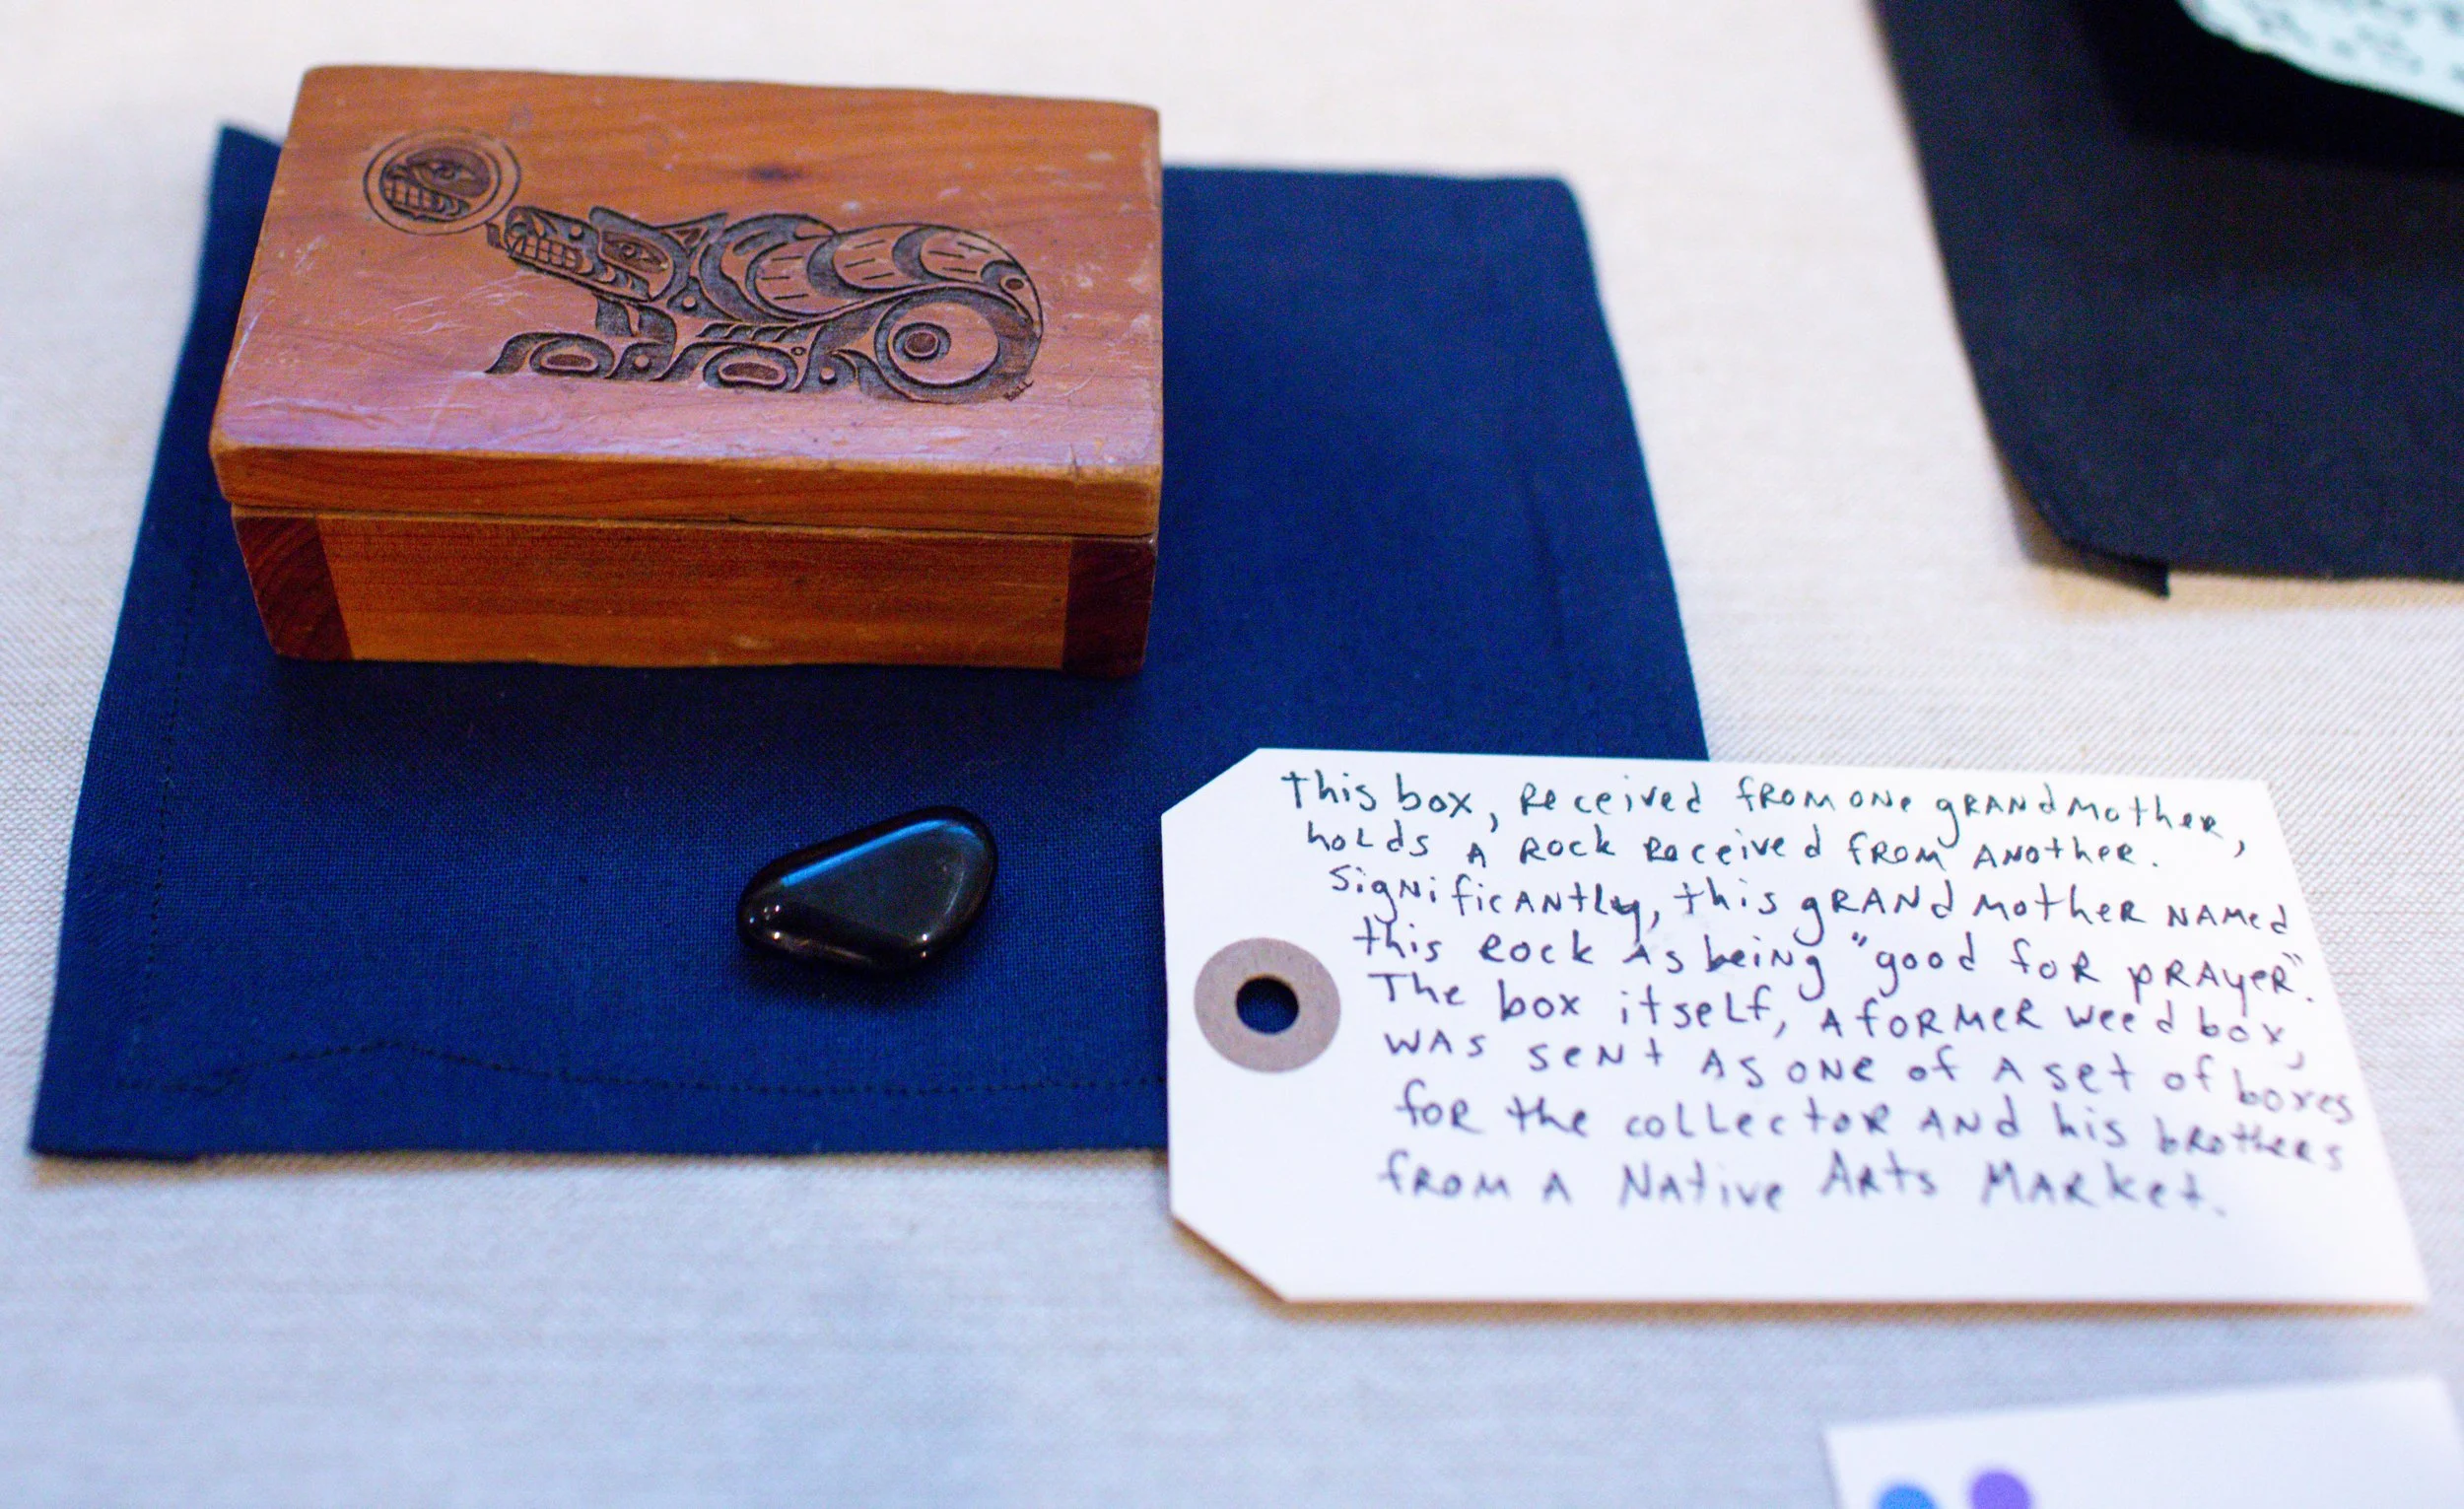 This box, received from one grandmother,
holds a rock received from another.
Significantly, this grandmother named
this rock as being "good for prayer".
The box itself, a former weed box,
was sent as one of a set of boxes
for the collector and his brothers
from a Native Arts Market.